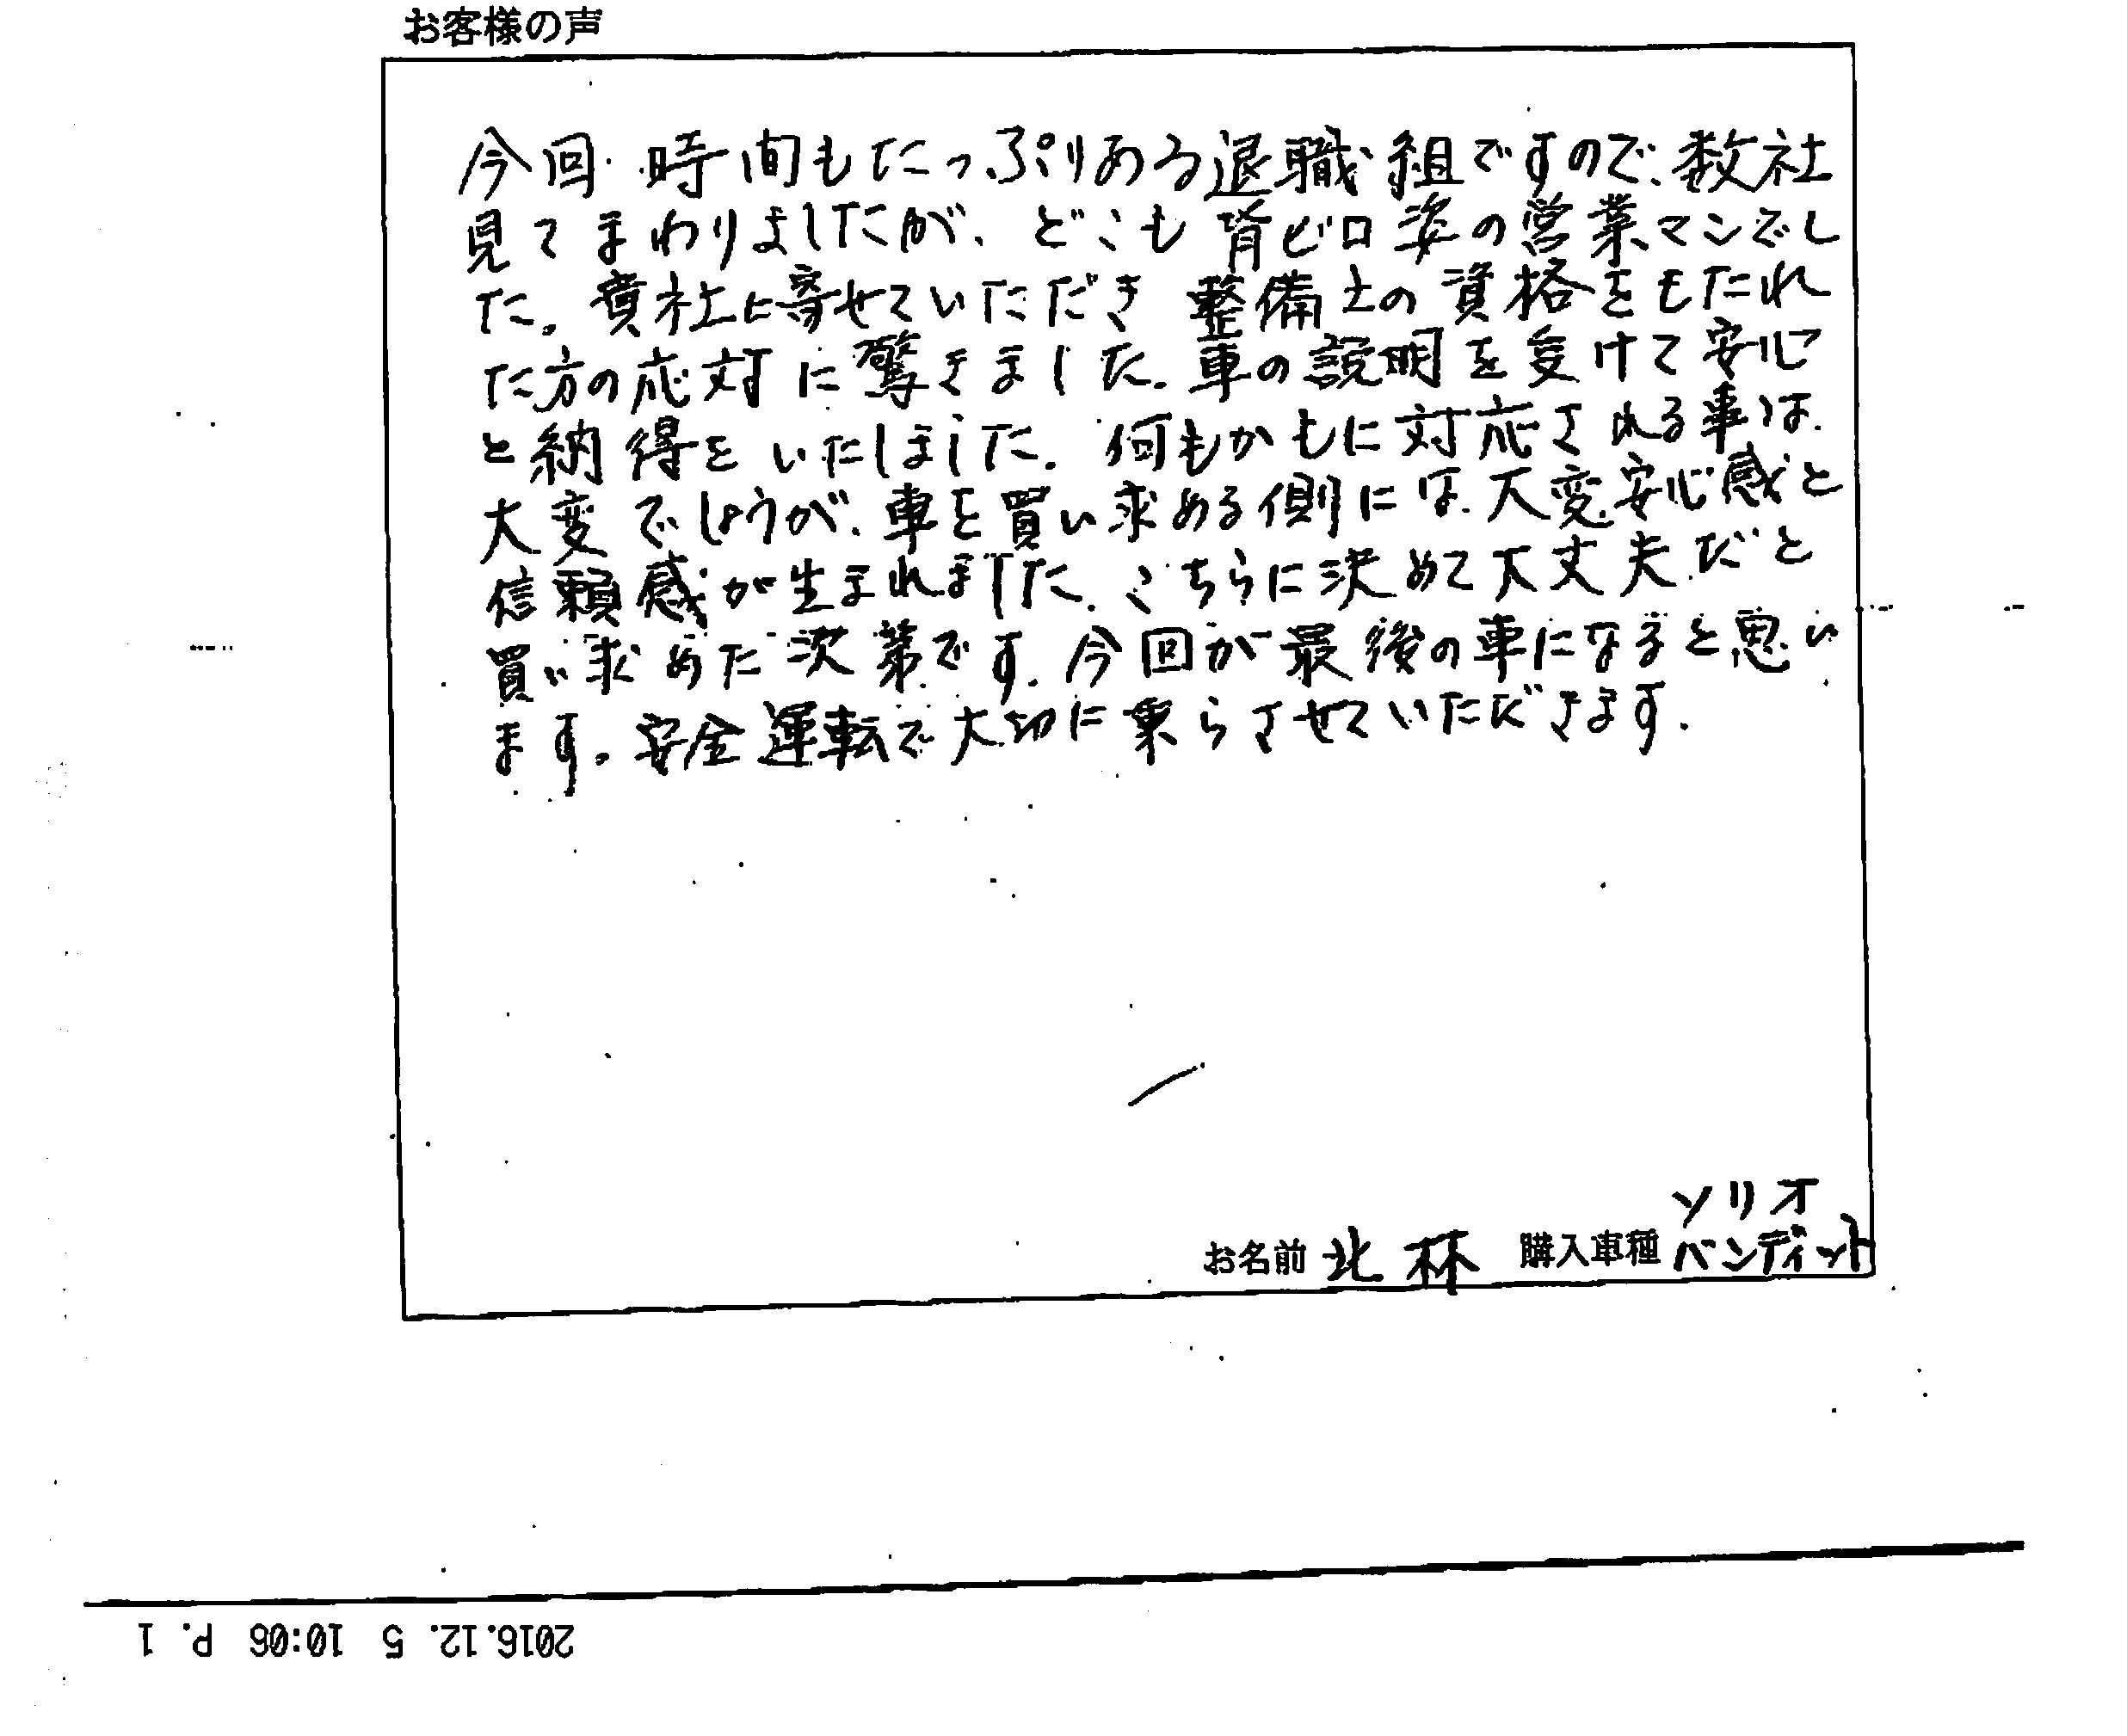 お客様の声
今回 時間もたっぷりある退職組ですので、数社
見てまわりましたが、どこも背ビロ姿の営業マンでし
た。貴社に寄せていただき 整備士の資格をもたれ
た方の応対に驚きました。車の説明を受けて安心
と納得をいたしました。何もかもに対応される事は
大変でしょうが、車を買い求める側には、大変安心感と
信頼感が生まれました。こちらに決めて大丈夫だと
買い求めた次第です。今回が最後の車になると思い
ます。安全運転で大切に乗らさせていただきます。
ソリオ
お名前 北林 購入車種 バンディット
2016.12. 5 10:06 P. 1